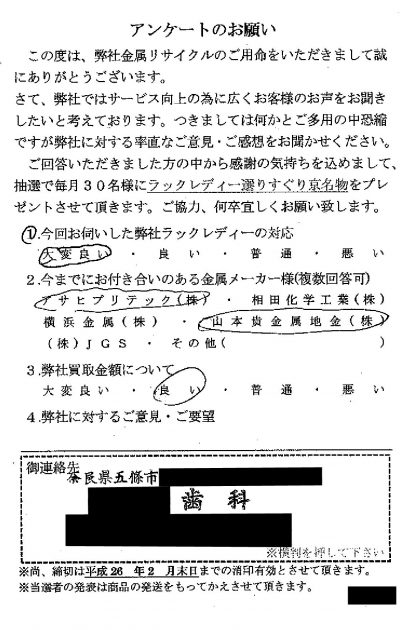 アンケートのお願い
この度は、弊社金属リサイクルのご用命をいただきまして誠
にありがとうございます。
さて、弊社ではサービス向上の為に広くお客様のお声をお聞き
したいと考えております。つきましては何かとご多用の中恐縮
ですが弊社に対する率直なご意見・ご感想をお聞かせください。
ご回答いただきました方の中から感謝の気持ちを込めまして、
抽選で毎月30名様にラックレディー選りすぐり京名物をプレ
ゼントさせて頂きます。ご協力、何卒宜しくお願い致します。
1.今回お伺いした弊社ラックレディーの対応
大変良い ・ 良い ・ 普通 ・ 悪い
2.今までにお付き合いのある金属メーカー様(複数回答可)
アサヒプリテック(株) ・ 相田化学工業(株)
横浜金属(株) ・ 山本貴金属地金(株)
(株)JGS ・ その他( )
3.弊社買取金額について
大変良い ・ 良い ・ 普通 ・ 悪い
4.弊社に対するご意見・ご要望
御連絡先
奈良県五條市
歯科
※横判を押して下さい
※尚、締切は平成26 年2 月末日までの消印有効とさせて頂きます。
※当選者の発表は商品の発送をもってかえさせて頂きます。